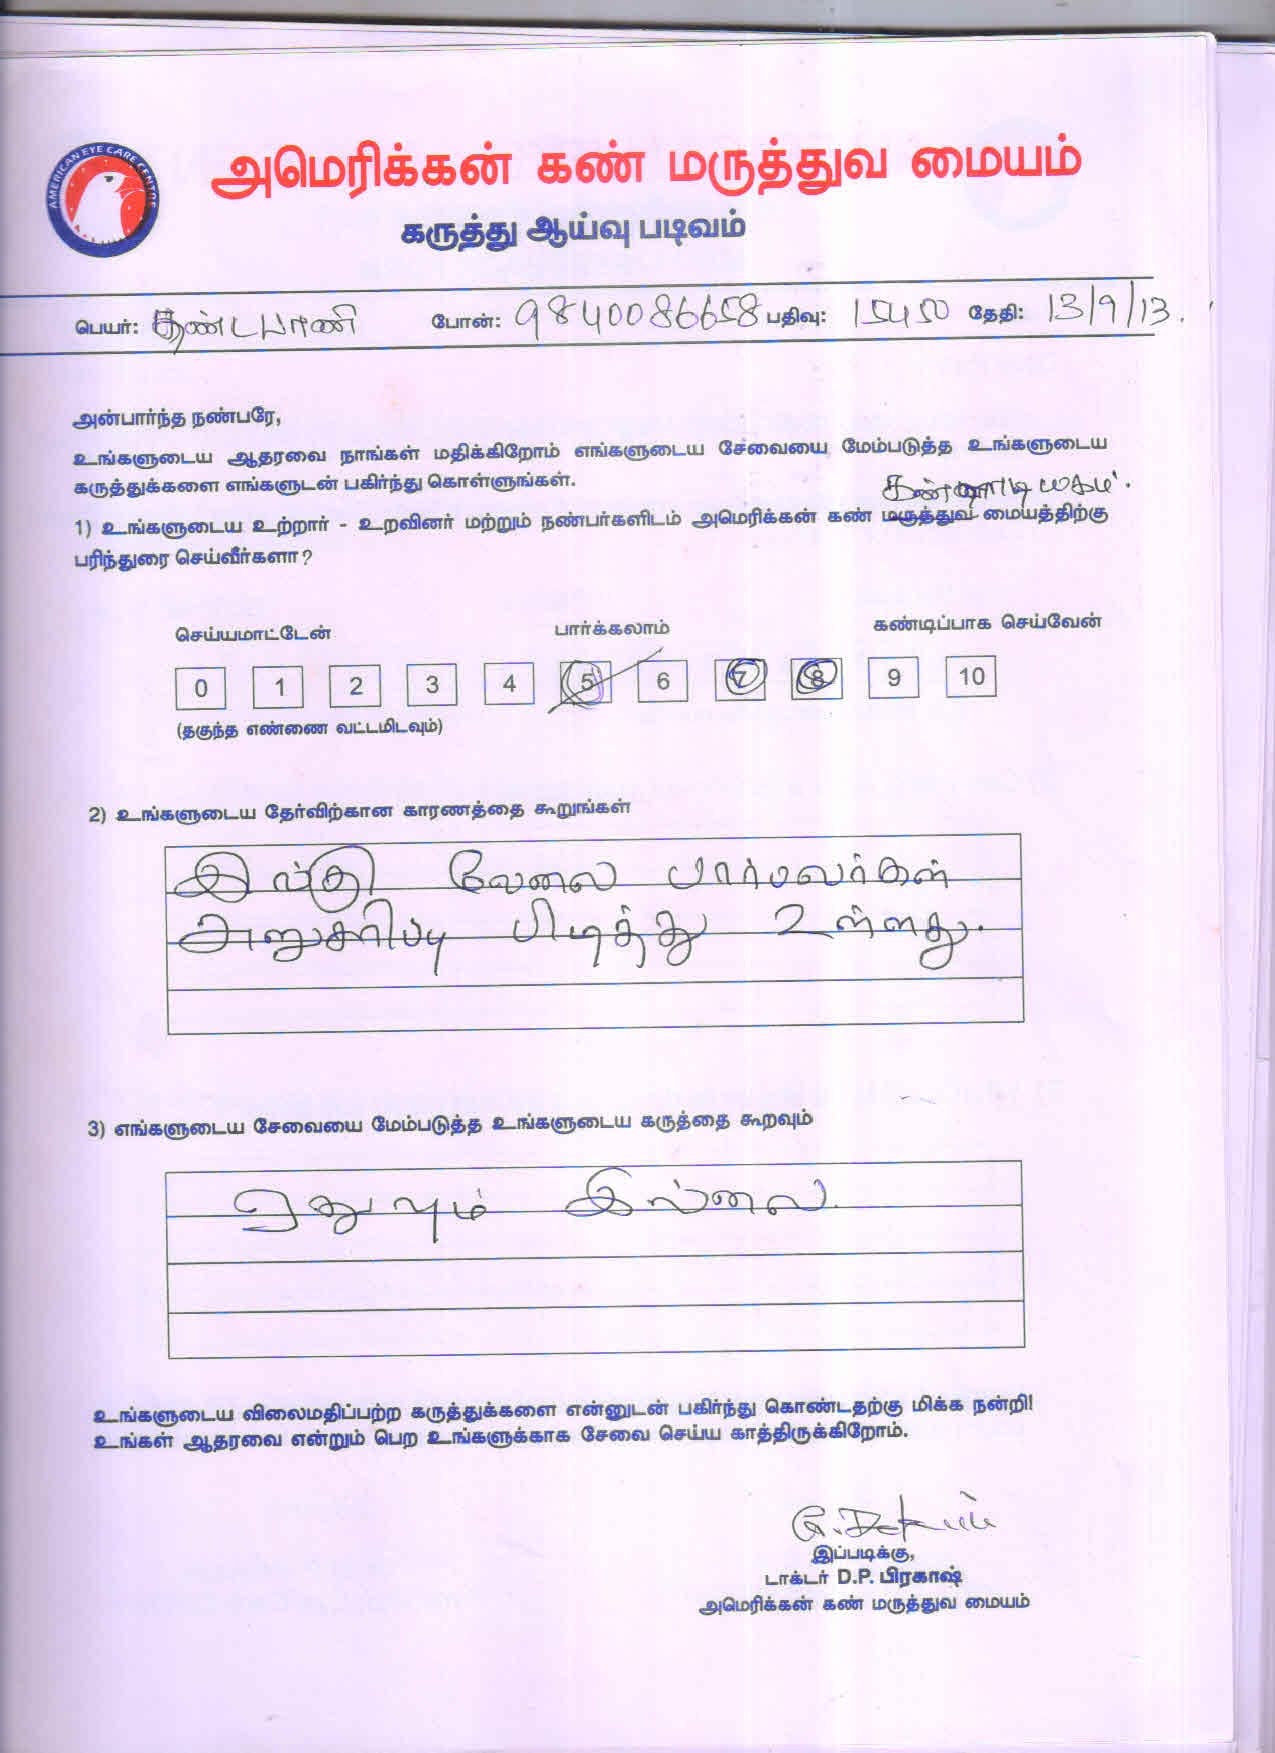 AMERICAN EYE CARE CENTOR
அமெரிக்கன் கண் மருத்துவ மையம்
கருத்து ஆய்வு படிவம்
பெயர்: தண்டபாணி போன்: 9840086658 பதிவு: 15450 தேதி: 13/9/13.
அன்பார்ந்த நண்பரே,
உங்களுடைய ஆதரவை நாங்கள் மதிக்கிறோம் எங்களுடைய சேவையை மேம்படுத்த உங்களுடைய
கருத்துக்களை எங்களுடன் பகிர்ந்து கொள்ளுங்கள்.
1) உங்களுடைய உற்றார் - உறவினர் மற்றும் நண்பர்களிடம் அமெரிக்கன் கண் மருத்துவ மையத்திற்கு
பரிந்துரை செய்வீர்களா?
செய்யமாட்டேன் பார்க்கலாம் கண்டிப்பாக செய்வேன்
0 1 2 3 4 5 6 7 8 9 10
(தகுந்த எண்ணை வட்டமிடவும்)
2) உங்களுடைய தேர்விற்கான காரணத்தை கூறுங்கள்
இங்கு வேலை பார்பவர்கள்
அனுசரிப்பு பிடித்து உள்ளது.
3) எங்களுடைய சேவையை மேம்படுத்த உங்களுடைய கருத்தை கூறவும்
ஏதுவும் இல்லை.
உங்களுடைய விலைமதிப்பற்ற கருத்துக்களை என்னுடன் பகிர்ந்து கொண்டதற்கு மிக்க நன்றி!
உங்கள் ஆதரவை என்றும் பெற உங்களுக்காக சேவை செய்ய காத்திருக்கிறோம்.
இப்படிக்கு,
டாக்டர் D.P. பிரகாஷ்
அமெரிக்கன் கண் மருத்துவ மையம்